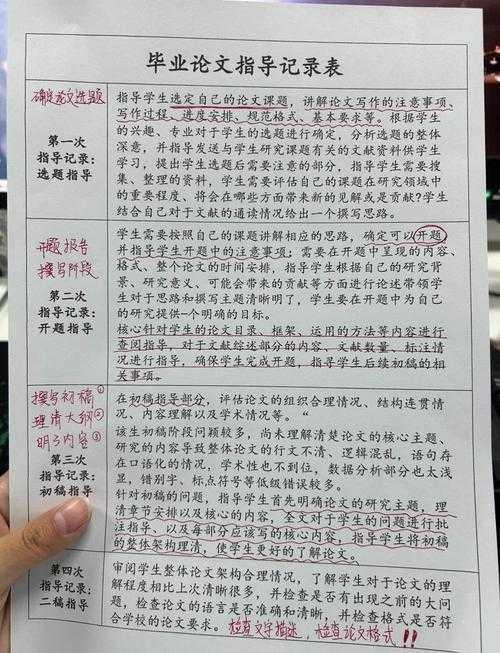 毕业论文指导记录表
确定论文选题
第一次
指导记录:
选题指导
指导学生选定自己的论文课题，讲解论文写作的注意事项、
写作过程、进度安排、规范格式、基本要求等。根据学生
的兴趣、专业对于学生的选题进行确定，分析选题的整体
深意，并指导发送与学生研究课题有关的文献资料供学生
学习，提出学生选题后需要注意的部分，指导学生需要搜
集、整理的资料，学生需要评估自己的课题在研究领域中
的重要程度、将会在哪些方面带来新的见解或是贡献?学生
结合自己对于文献的通读情况给出一个撰写思路。
开题报告
撰写阶段
第二次
指导记录:
开题指导
学生需要按照自己的课题讲解相应的思路，确定可以开题，
并指导学生开题中的注意事项；需要在开题中呈现的内容、
格式、整个论文的时间安排，指导学生根据自己的研究背
景、研究意义，可能会带来的贡献等方面进行论述带领学
生对于思路和撰写主题清晰明了，学生要在开题中为自己
的研究提供一个明确的目标。
核心针对学生的论文目录、框架、运用的方法等内容进行
查阅指导，对于文献综述部分的内容、文献数量、标注情
况进行指导，确保学生完成开题，指导学生后续初稿的相
关事项。
撰写初稿①
理清大纲②
明了内容③
第三次
指导记录:
初稿指导
在初稿指导部分，评估论文的组织合理情况、结构连贯情
况、内容理解以及学术情况等。“
该生初稿阶段问题较多，尚未理解清楚论文的核心主题、
研究的内容导致整体论文的行文不清、逻辑混乱，语句存
在口语化的情况，学术性也不到位，数据分析部分也太浅
显，错别字、标点符号等低级错误较多。
针对初稿的问题，指导学生首先明确论文的研究主题，理
清章节安排以及核心的内容，全文对于学生的问题进行批
注指导、以及每部分应该写的核心内容，指导学生将初稿
的整体架构理清，使学生更好的了解论文。
第四次
指导记录:
二稿指导
审阅学生整体论文架构合理情况，了解学生对于论文的理
解程度相比上次清晰很多，并检查是否有出现之前的大问
题，检查论文的语言是否准确和清晰，并检查格式是否符
合学校的论文要求。检查文字描述，检查论文格式!!